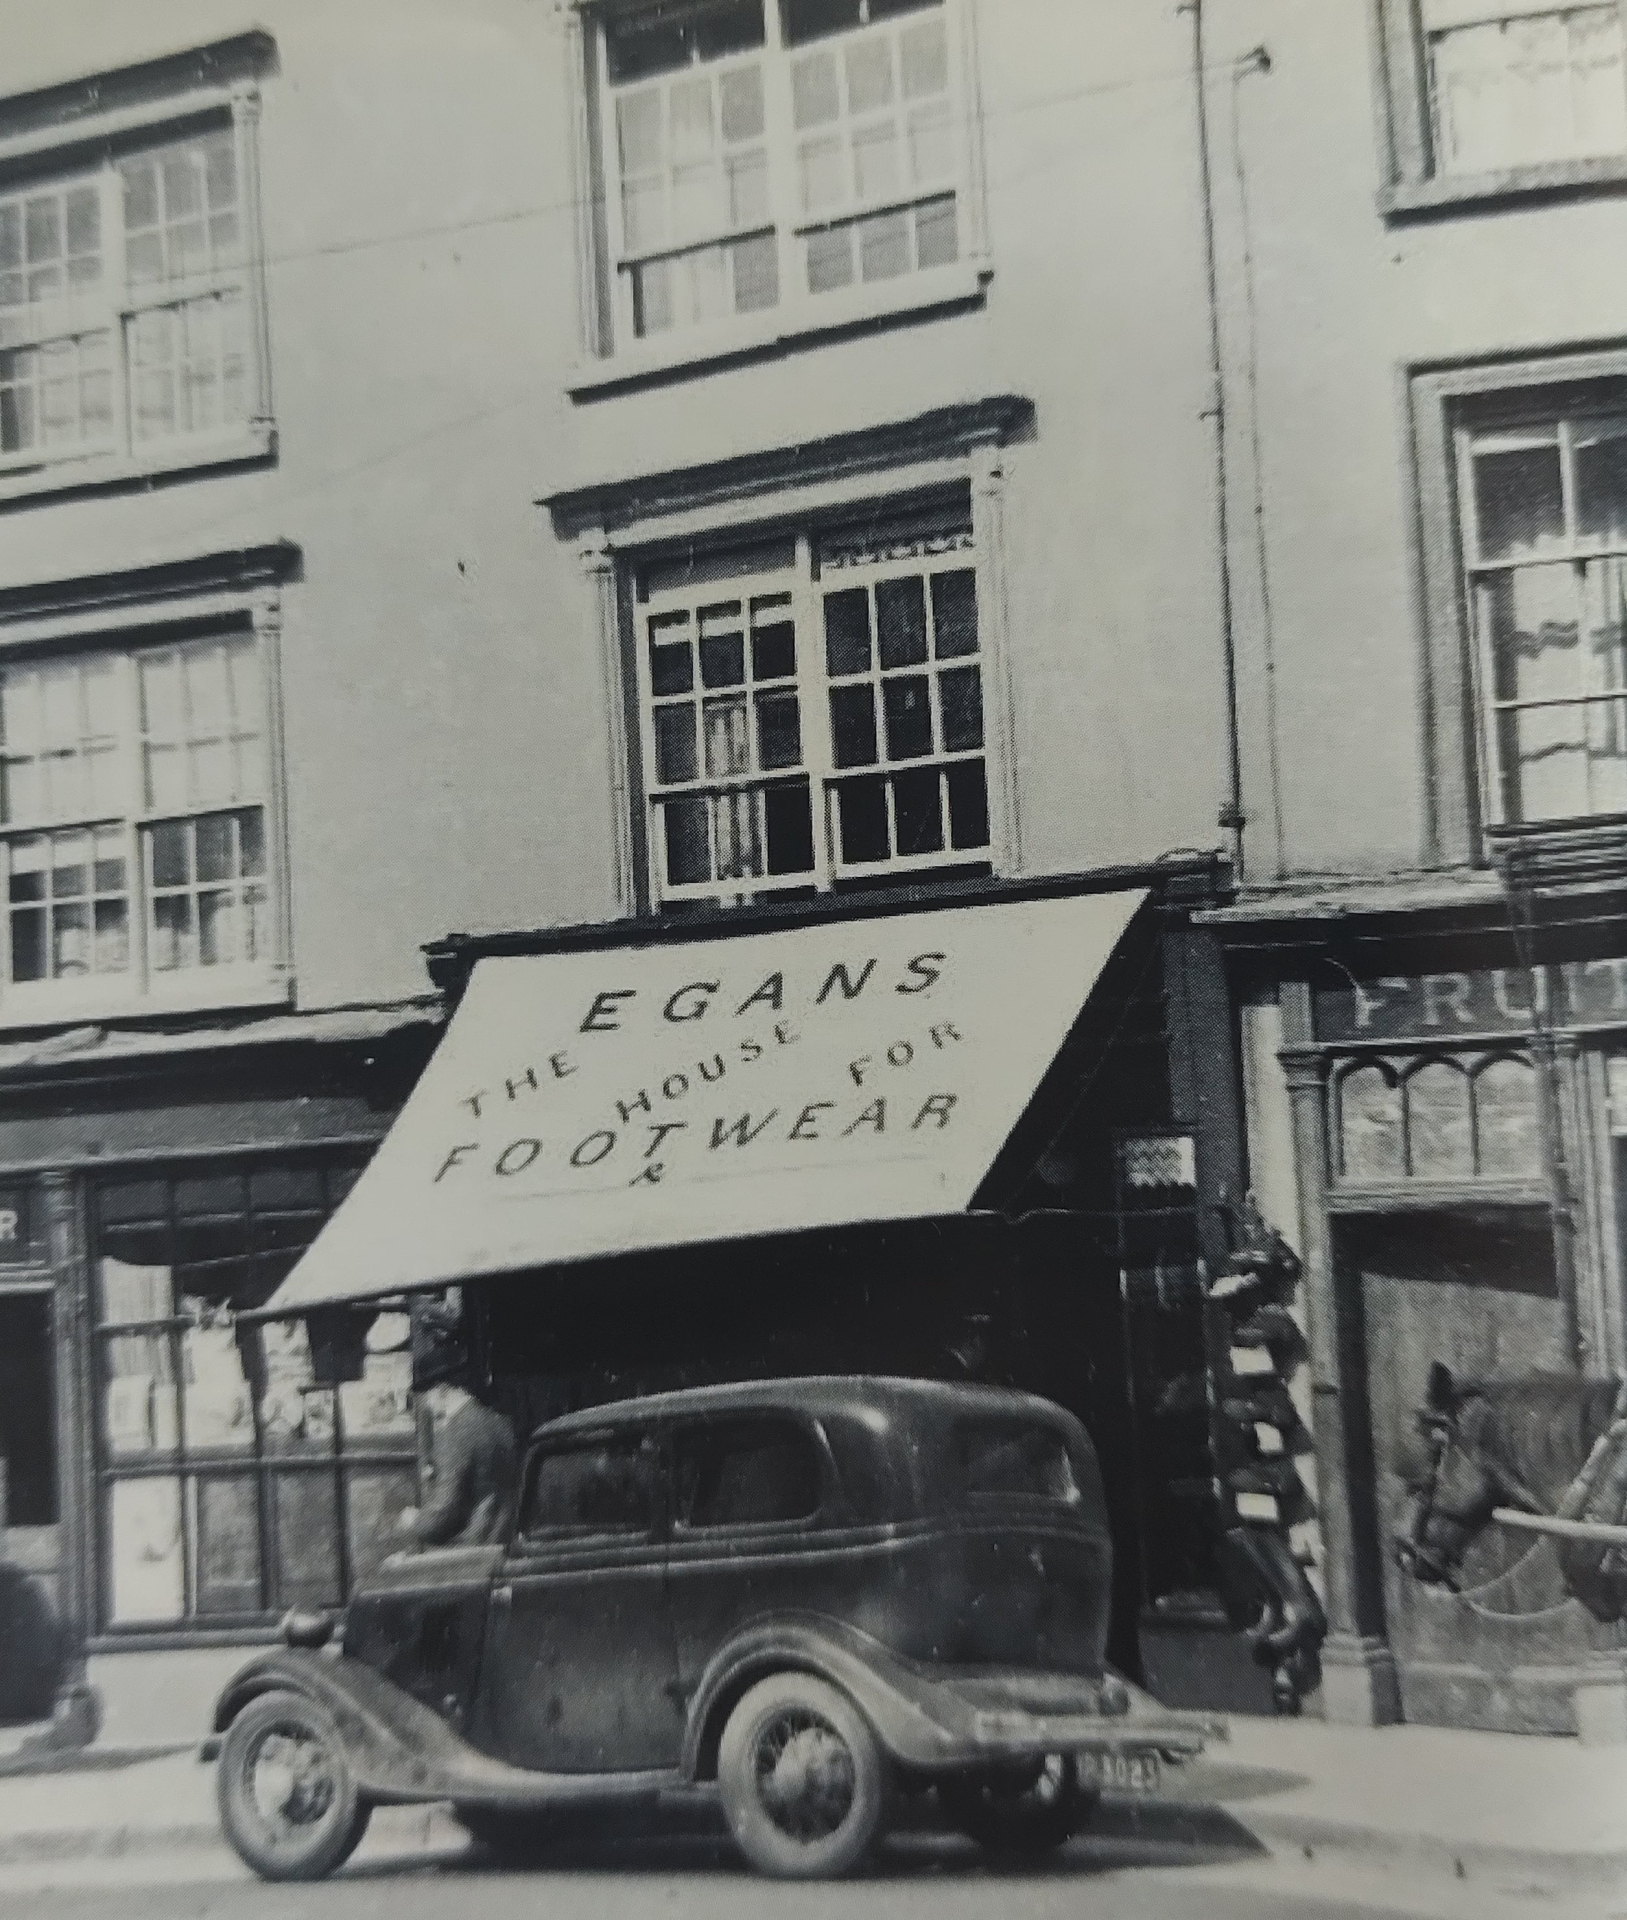 EGANS
THE HOUSE FOR
FOOTWEAR
&
FRUIT
R